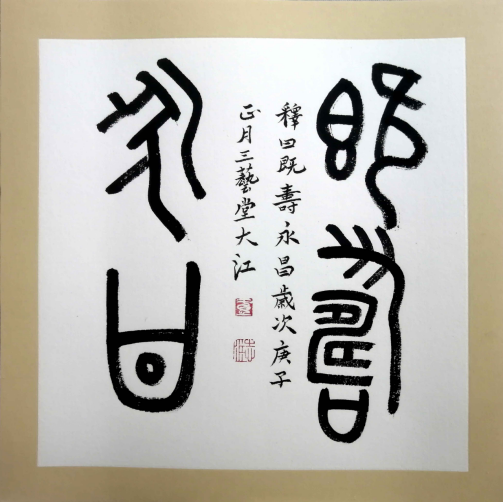 既壽
釋曰既壽永昌歲次庚子
正月三藝堂大江
永昌